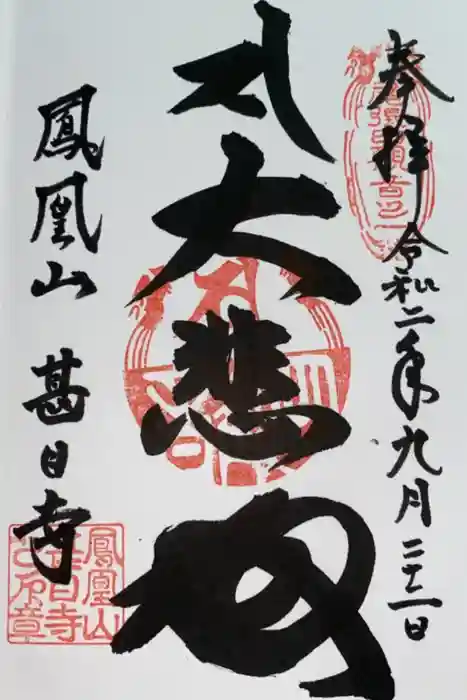 奉拝 令和二年九月二十一日
大悲殿
鳳凰山 甚目寺
鳳凰山
甚目寺
之印章